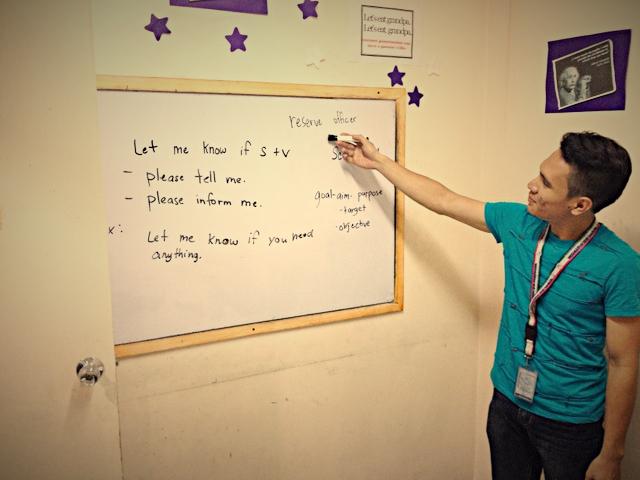 Let's eat grandpa.
Let's eat, grandpa.
reserve officer
Let me know if S + V
- please tell me.
- please inform me.
goal-aim-purpose
-target
-objective
x:
Let me know if you need
anything.